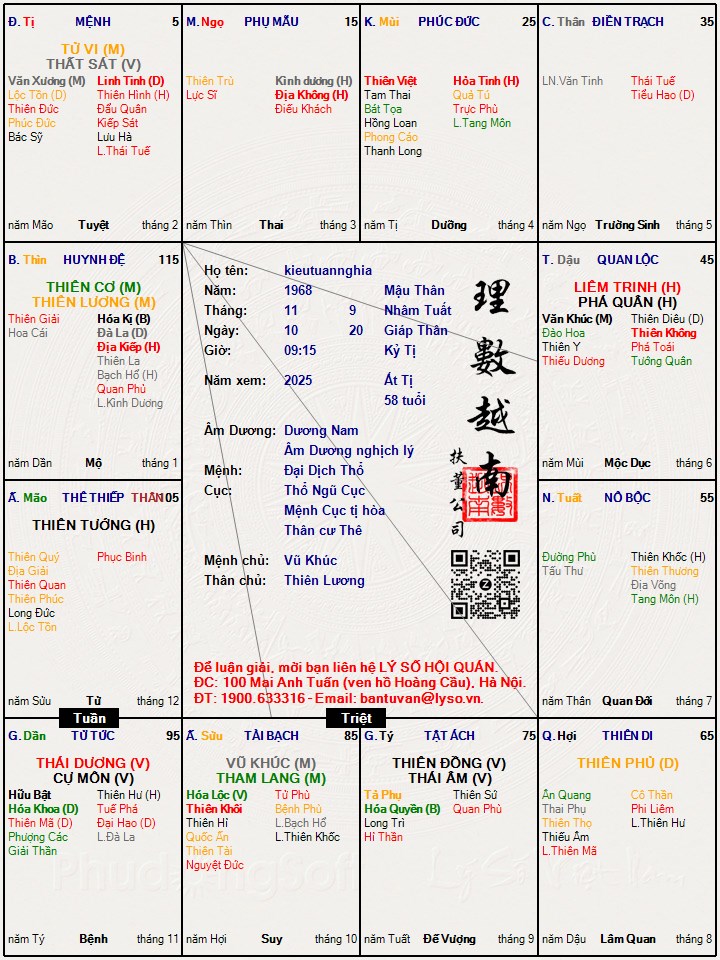 Đ. Tị MỆNH 5
TỬ VI (M)
THẤT SÁT (V)
Văn Xương (M) Linh Tinh (D)
Lộc Tồn (D) Thiên Hình (H)
Thiên Đức Đẩu Quân
Phúc Đức Kiếp Sát
Bác Sỹ Lưu Hà
L.Thái Tuế
năm Mão Tuyệt tháng 2
M. Ngọ PHỤ MẪU 15
Thiên Trù Kình dương (H)
Lực Sĩ Địa Không (H)
Điếu Khách
năm Thìn Thai tháng 3
K. Mùi PHÚC ĐỨC 25
Thiên Việt Hỏa Tinh (H)
Tam Thai Quả Tú
Bát Tọa Trực Phù
Hồng Loan L.Tang Môn
Phong Cáo
Thanh Long
năm Tị Dưỡng tháng 4
C. Thân ĐIỀN TRẠCH 35
LN.Văn Tinh Thái Tuế
Tiểu Hao (D)
năm Ngọ Trường Sinh tháng 5
B. Thìn HUYNH ĐỆ 115
THIÊN CƠ (M)
THIÊN LƯƠNG (M)
Thiên Giải Hóa Kị (B)
Hoa Cái Đà La (D)
Địa Kiếp (H)
Thiên La
Bạch Hổ (H)
Quan Phủ
L.Kình Dương
năm Dần Mộ tháng 1
Họ tên: kieutuannghia
Năm: 1968 Mậu Thân
Tháng: 11 9 Nhâm Tuất
Ngày: 10 20 Giáp Thân
Giờ: 09:15 Kỷ Tị
Năm xem: 2025 Ất Tị
58 tuổi
Âm Dương: Dương Nam
Âm Dương nghịch lý
Mệnh: Đại Dịch Thổ
Cục: Thổ Ngũ Cục
Mệnh Cục tị hòa
Thân cư Thê
Mệnh chủ: Vũ Khúc
Thân chủ: Thiên Lương
理數越南
扶董公司
Để luận giải, mời bạn liên hệ LÝ SỐ HỘI QUÁN.
ĐC: 100 Mai Anh Tuấn (ven hồ Hoàng Cầu), Hà Nội.
ĐT: 1900.633316 - Email: bantuvan@lyso.vn.
T. Dậu QUAN LỘC 45
LIÊM TRINH (H)
PHÁ QUÂN (H)
Văn Khúc (M) Thiên Diêu (D)
Đào Hoa Thiên Không
Thiên Y Phá Toái
Thiếu Dương Tướng Quân
năm Mùi Mộc Dục tháng 6
Ấ. Mão THÊ THIẾP THÂN 105
THIÊN TƯỚNG (H)
Thiên Quý Phục Binh
Địa Giải
Thiên Quan
Thiên Phúc
Long Đức
L.Lộc Tồn
năm Sửu Tử tháng 12
N. Tuất NÔ BỘC 55
Đường Phù Thiên Khốc (H)
Tấu Thư Thiên Thương
Địa Võng
Tang Môn (H)
năm Thân Quan Đới tháng 7
Tuần
Triệt
G. Dần TỬ TỨC 95
THÁI DƯƠNG (V)
CỰ MÔN (V)
Hữu Bật Thiên Hư (H)
Hóa Khoa (D) Tuế Phá
Thiên Mã (D) Đại Hao (D)
Phượng Các L.Đà La
Giải Thần
năm Tý Bệnh tháng 11
Ấ. Sửu TÀI BẠCH 85
VŨ KHÚC (M)
THAM LANG (M)
Hóa Lộc (V) Tử Phù
Thiên Khôi Bệnh Phù
Thiên Hỉ L.Bạch Hổ
Quốc Ấn L.Thiên Khốc
Thiên Tài
Nguyệt Đức
năm Hợi Suy tháng 10
G. Tý TẬT ÁCH 75
THIÊN ĐỒNG (V)
THÁI ÂM (V)
Tả Phụ Thiên Sứ
Hóa Quyền (B) Quan Phù
Long Trì
Hỉ Thần
năm Tuất Đế Vượng tháng 9
Q. Hợi THIÊN DI 65
THIÊN PHỦ (D)
Ân Quang Cô Thần
Thai Phụ Phi Liêm
Thiên Thọ L.Thiên Hư
Thiếu Âm
L.Thiên Mã
năm Dậu Lâm Quan tháng 8